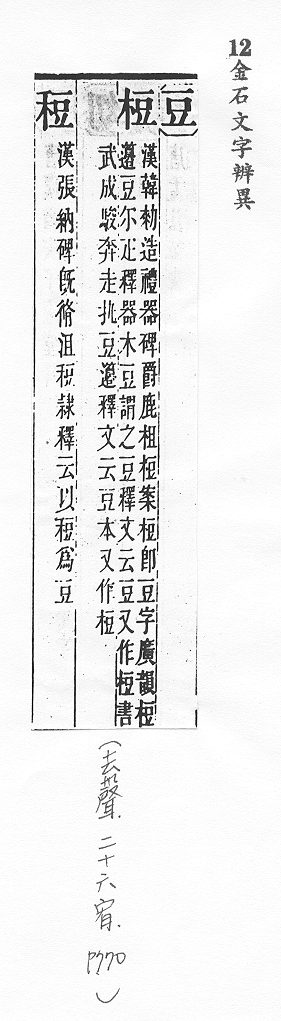 12金石文字辨異
豆
梪
漢韓勅造禮器碑爵鹿柤梪案梪即豆字廣韻梪
籩豆尔疋釋器木豆謂之豆釋文云豆又作梪書
武成駿奔走執豆籩釋文云豆本又作梪
漢張納碑既脩沮隸釋云以爲豆
(去聲.二十六宥.P770)